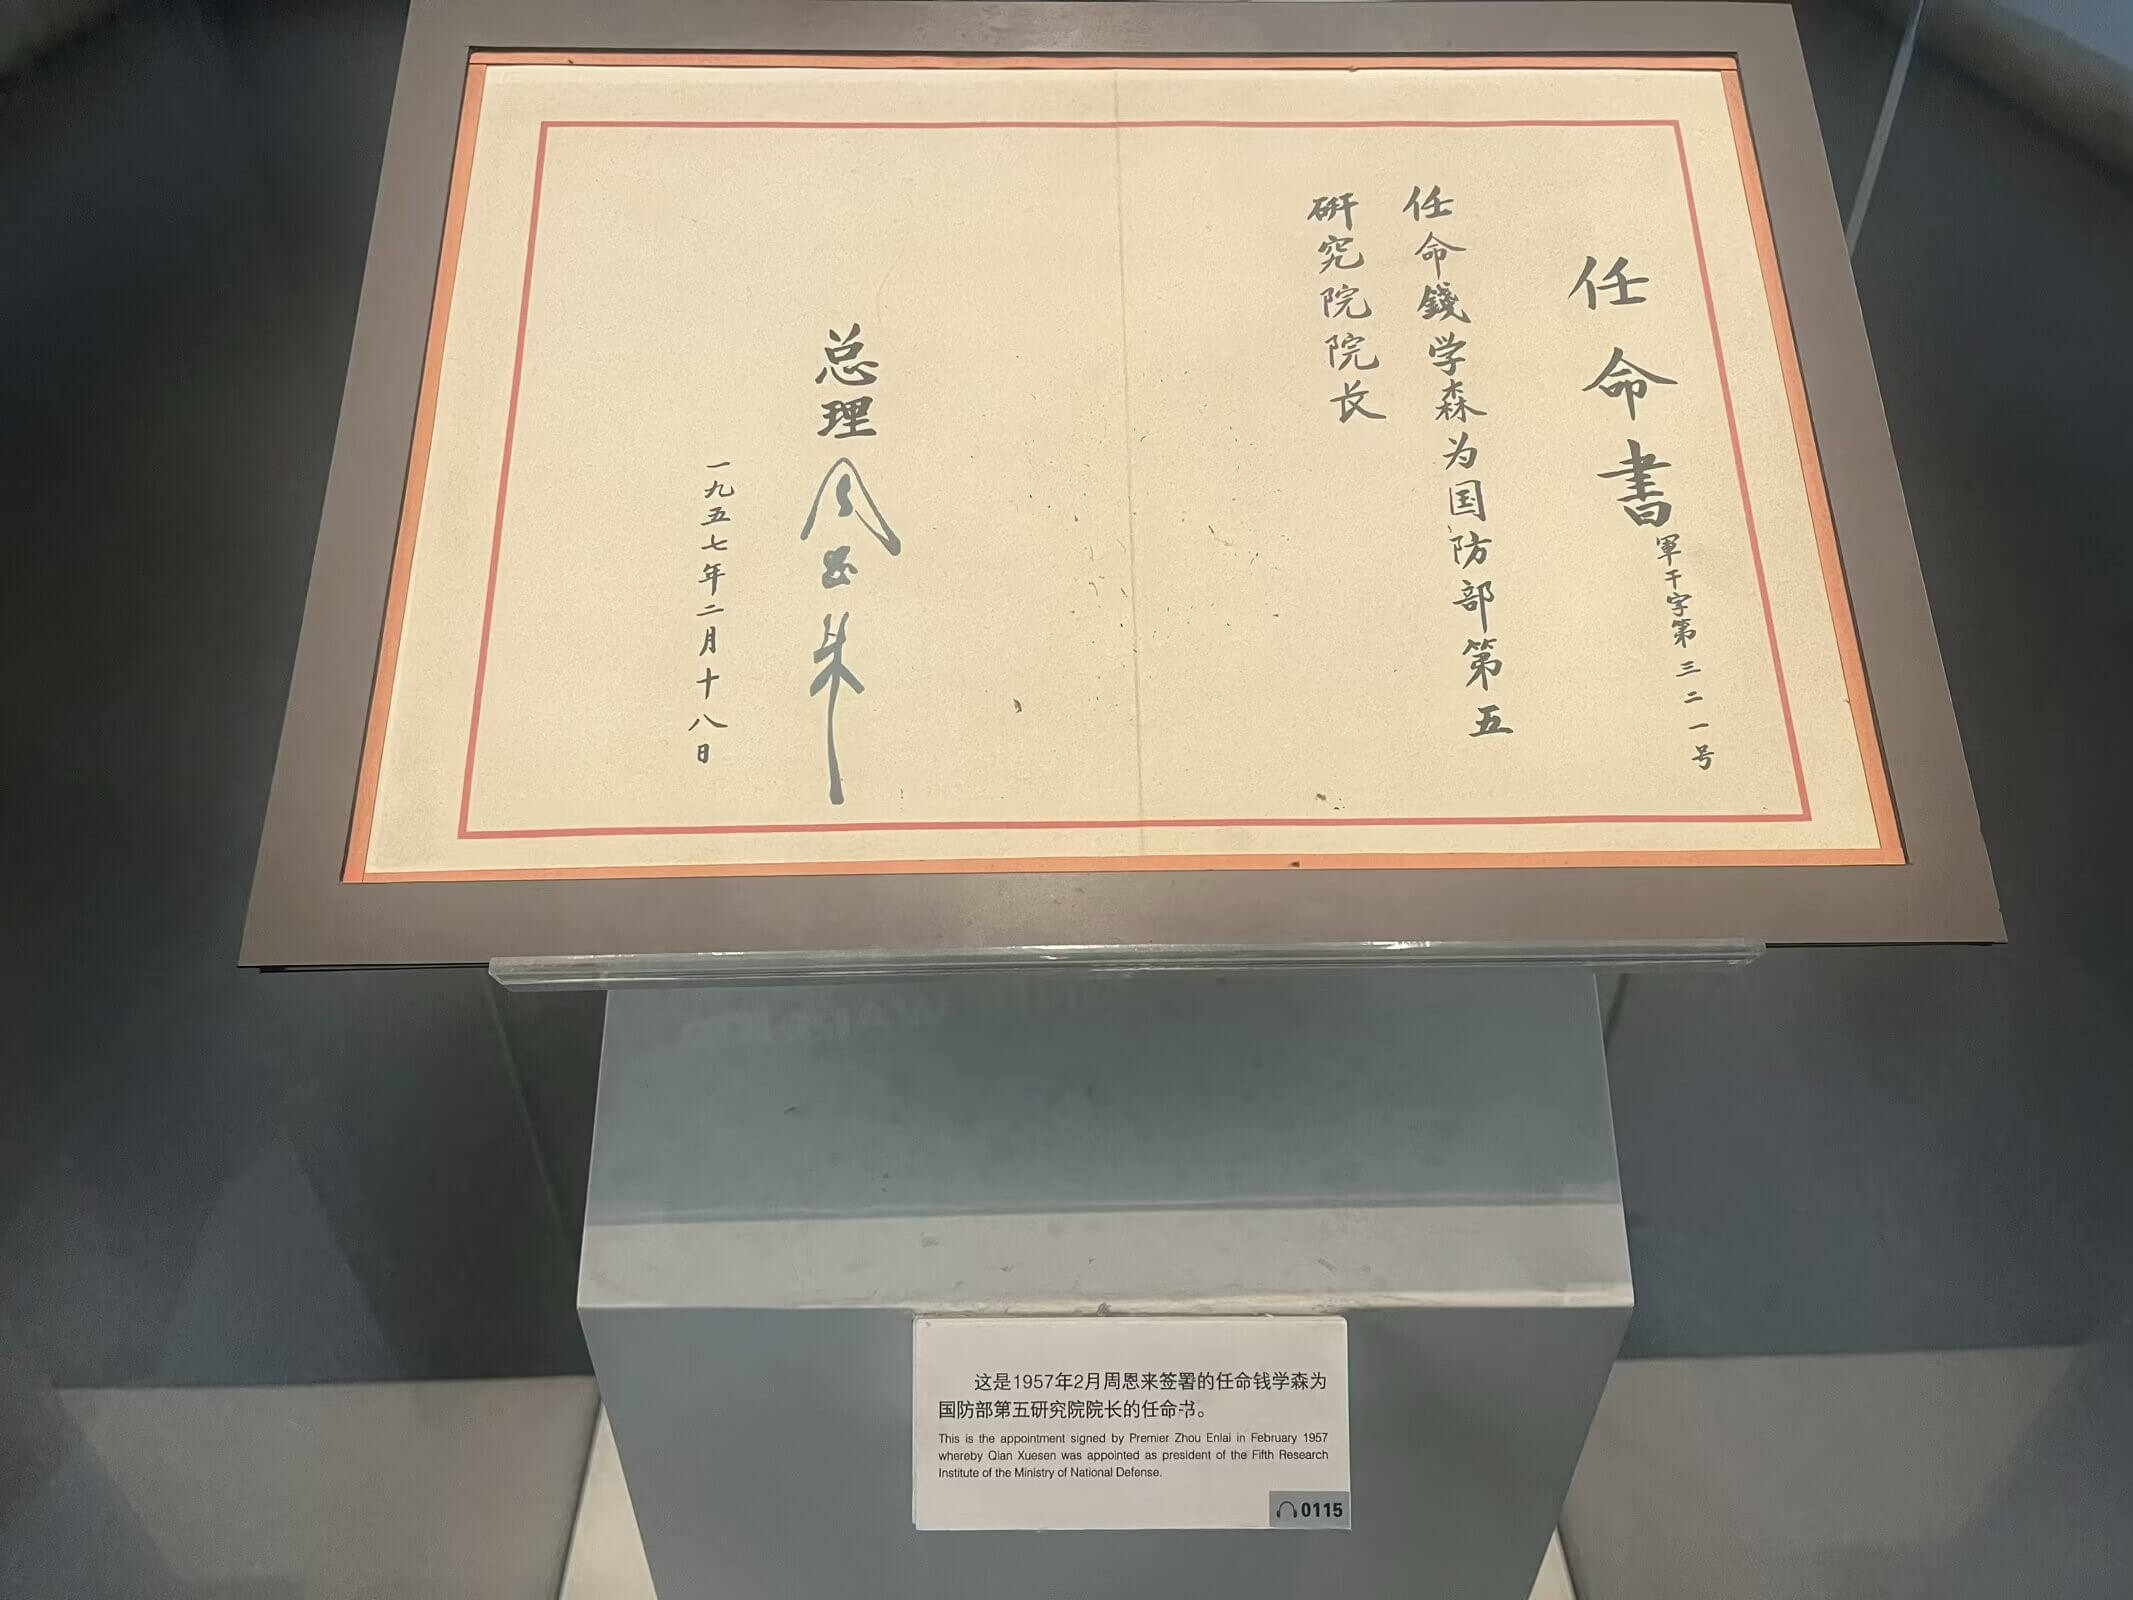 任命書
軍干字第三二一号
任命錢学森为国防部第五
研究院院长
总理 周恩来
一九五七年二月十八日
这是1957年2月周恩来签署的任命钱学森为
国防部第五研究院院长的任命书。
This is the appointment signed by Premier Zhou Enlai in February 1957
whereby Qian Xuesen was appointed as president of the Fifth Research
Institute of the Ministry of National Defense.
0115